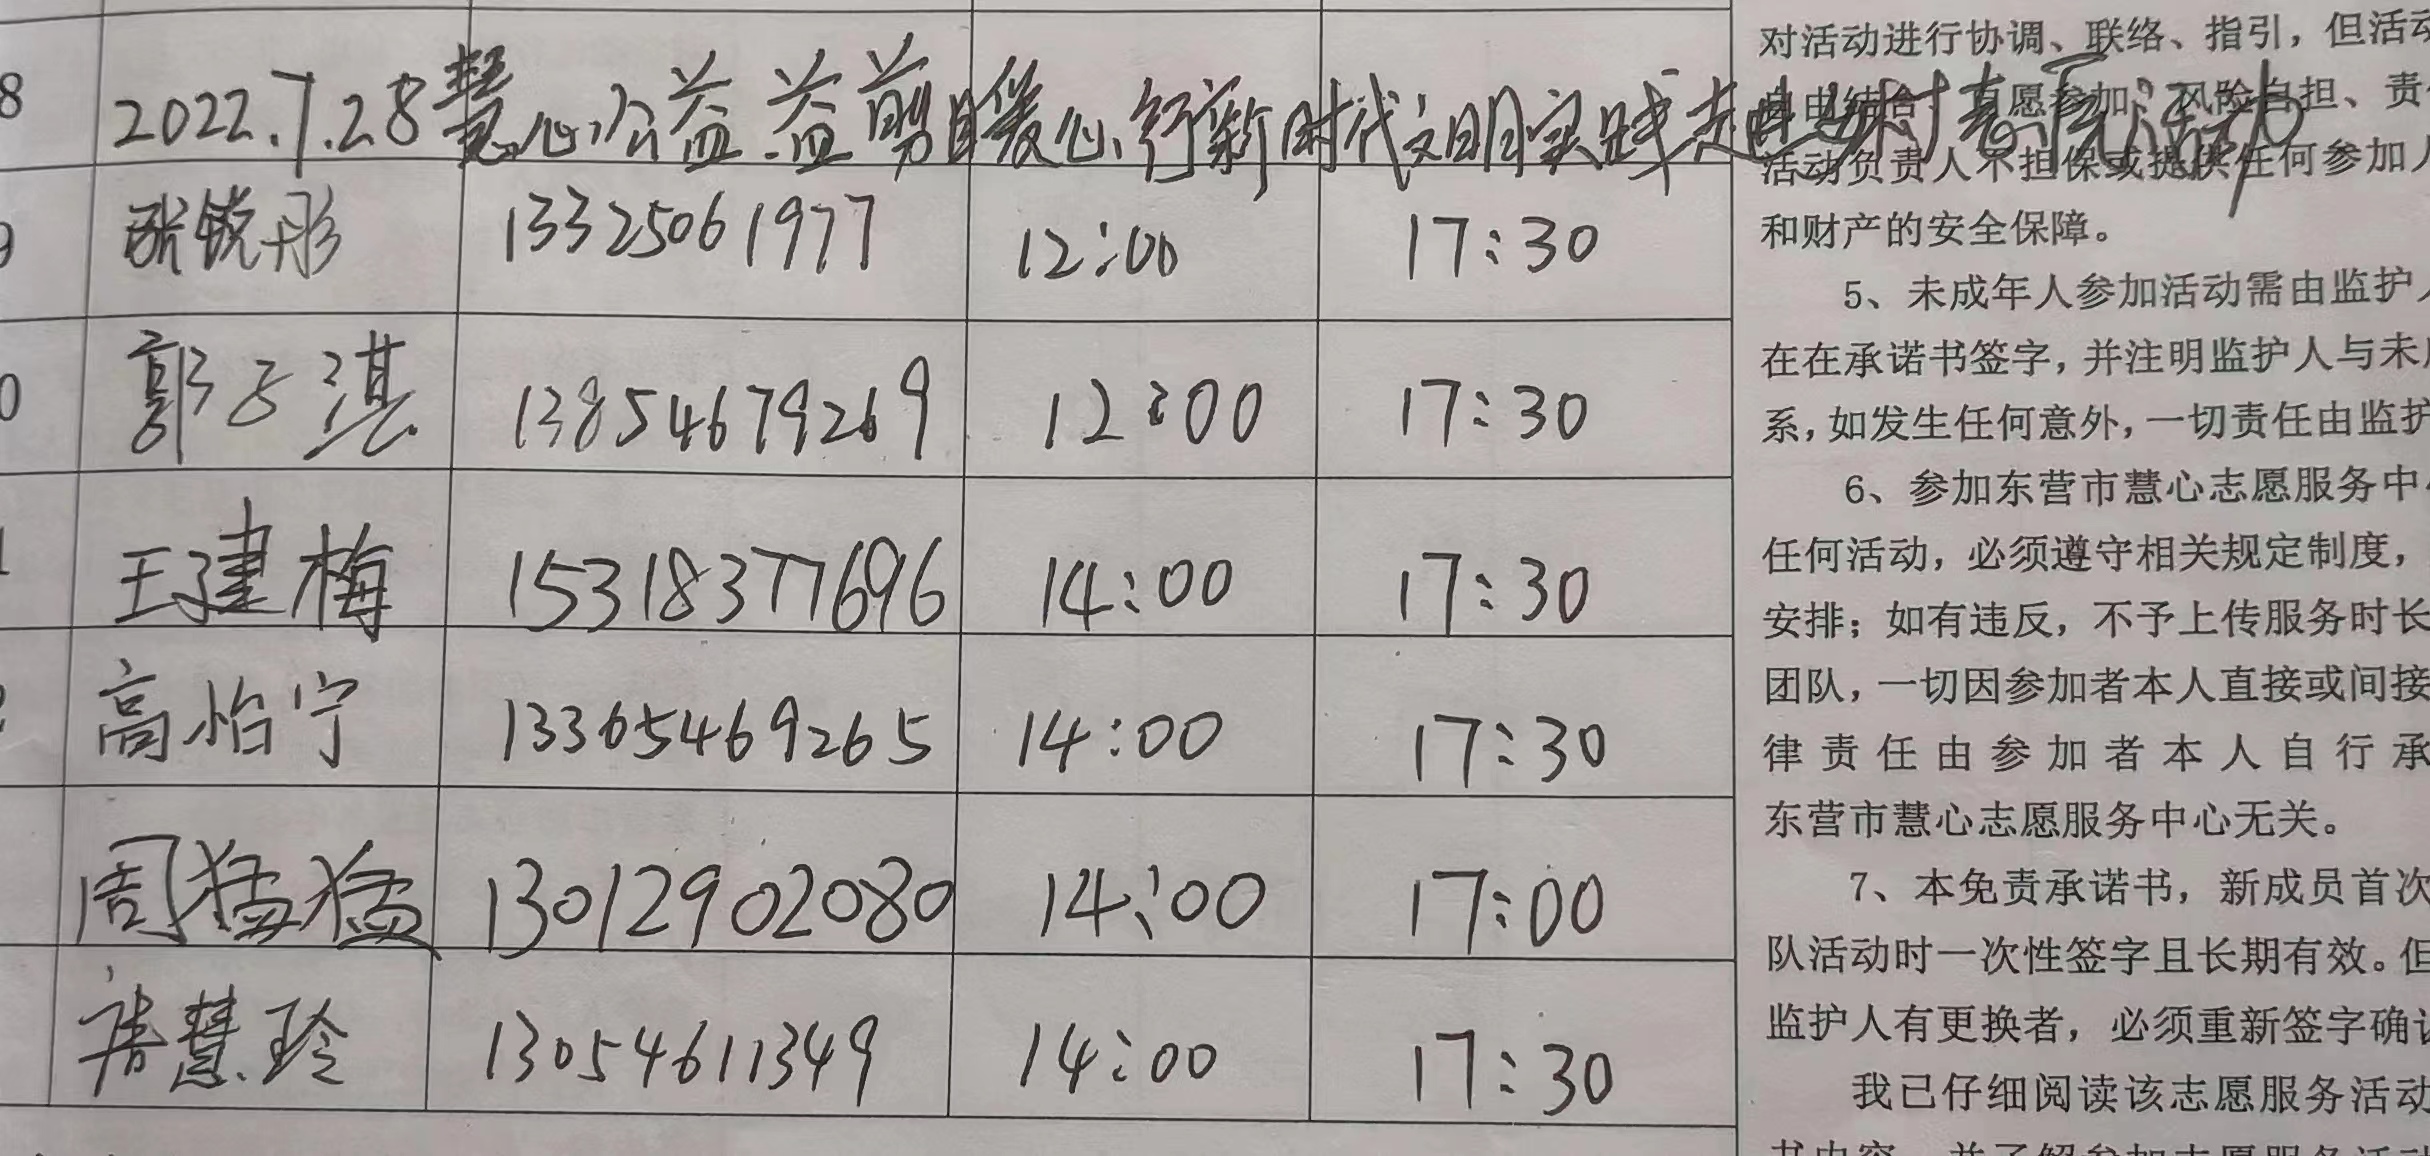 8 2022.7.28慧心公益.益剪暖心行新时代文明实践走进
张锐彤 13325061977 12:00 17:30
郭子淇 13854679269 12:00 17:30
王建梅 15318377696 14:00 17:30
高怡宁 13365469265 14:00 17:30
周猛猛 13012902080 14:00 17:00
慧玲 13054611349 14:00 17:30
对活动进行协调、联络、指引，但活动
风险自担、责
活动负责人不担保或提供任何参加人
和财产的安全保障。
5、未成年人参加活动需由监护人
在在承诺书签字，并注明监护人与未
系，如发生任何意外，一切责任由监护
6、参加东营市慧心志愿服务中
任何活动，必须遵守相关规定制度，
安排；如有违反，不予上传服务时长
团队，一切因参加者本人直接或间接
律责任由参加者本人自行承
东营市慧心志愿服务中心无关。
7、本免责承诺书，新成员首次
队活动时一次性签字且长期有效。但
监护人有更换者，必须重新签字确认
我已仔细阅读该志愿服务活动